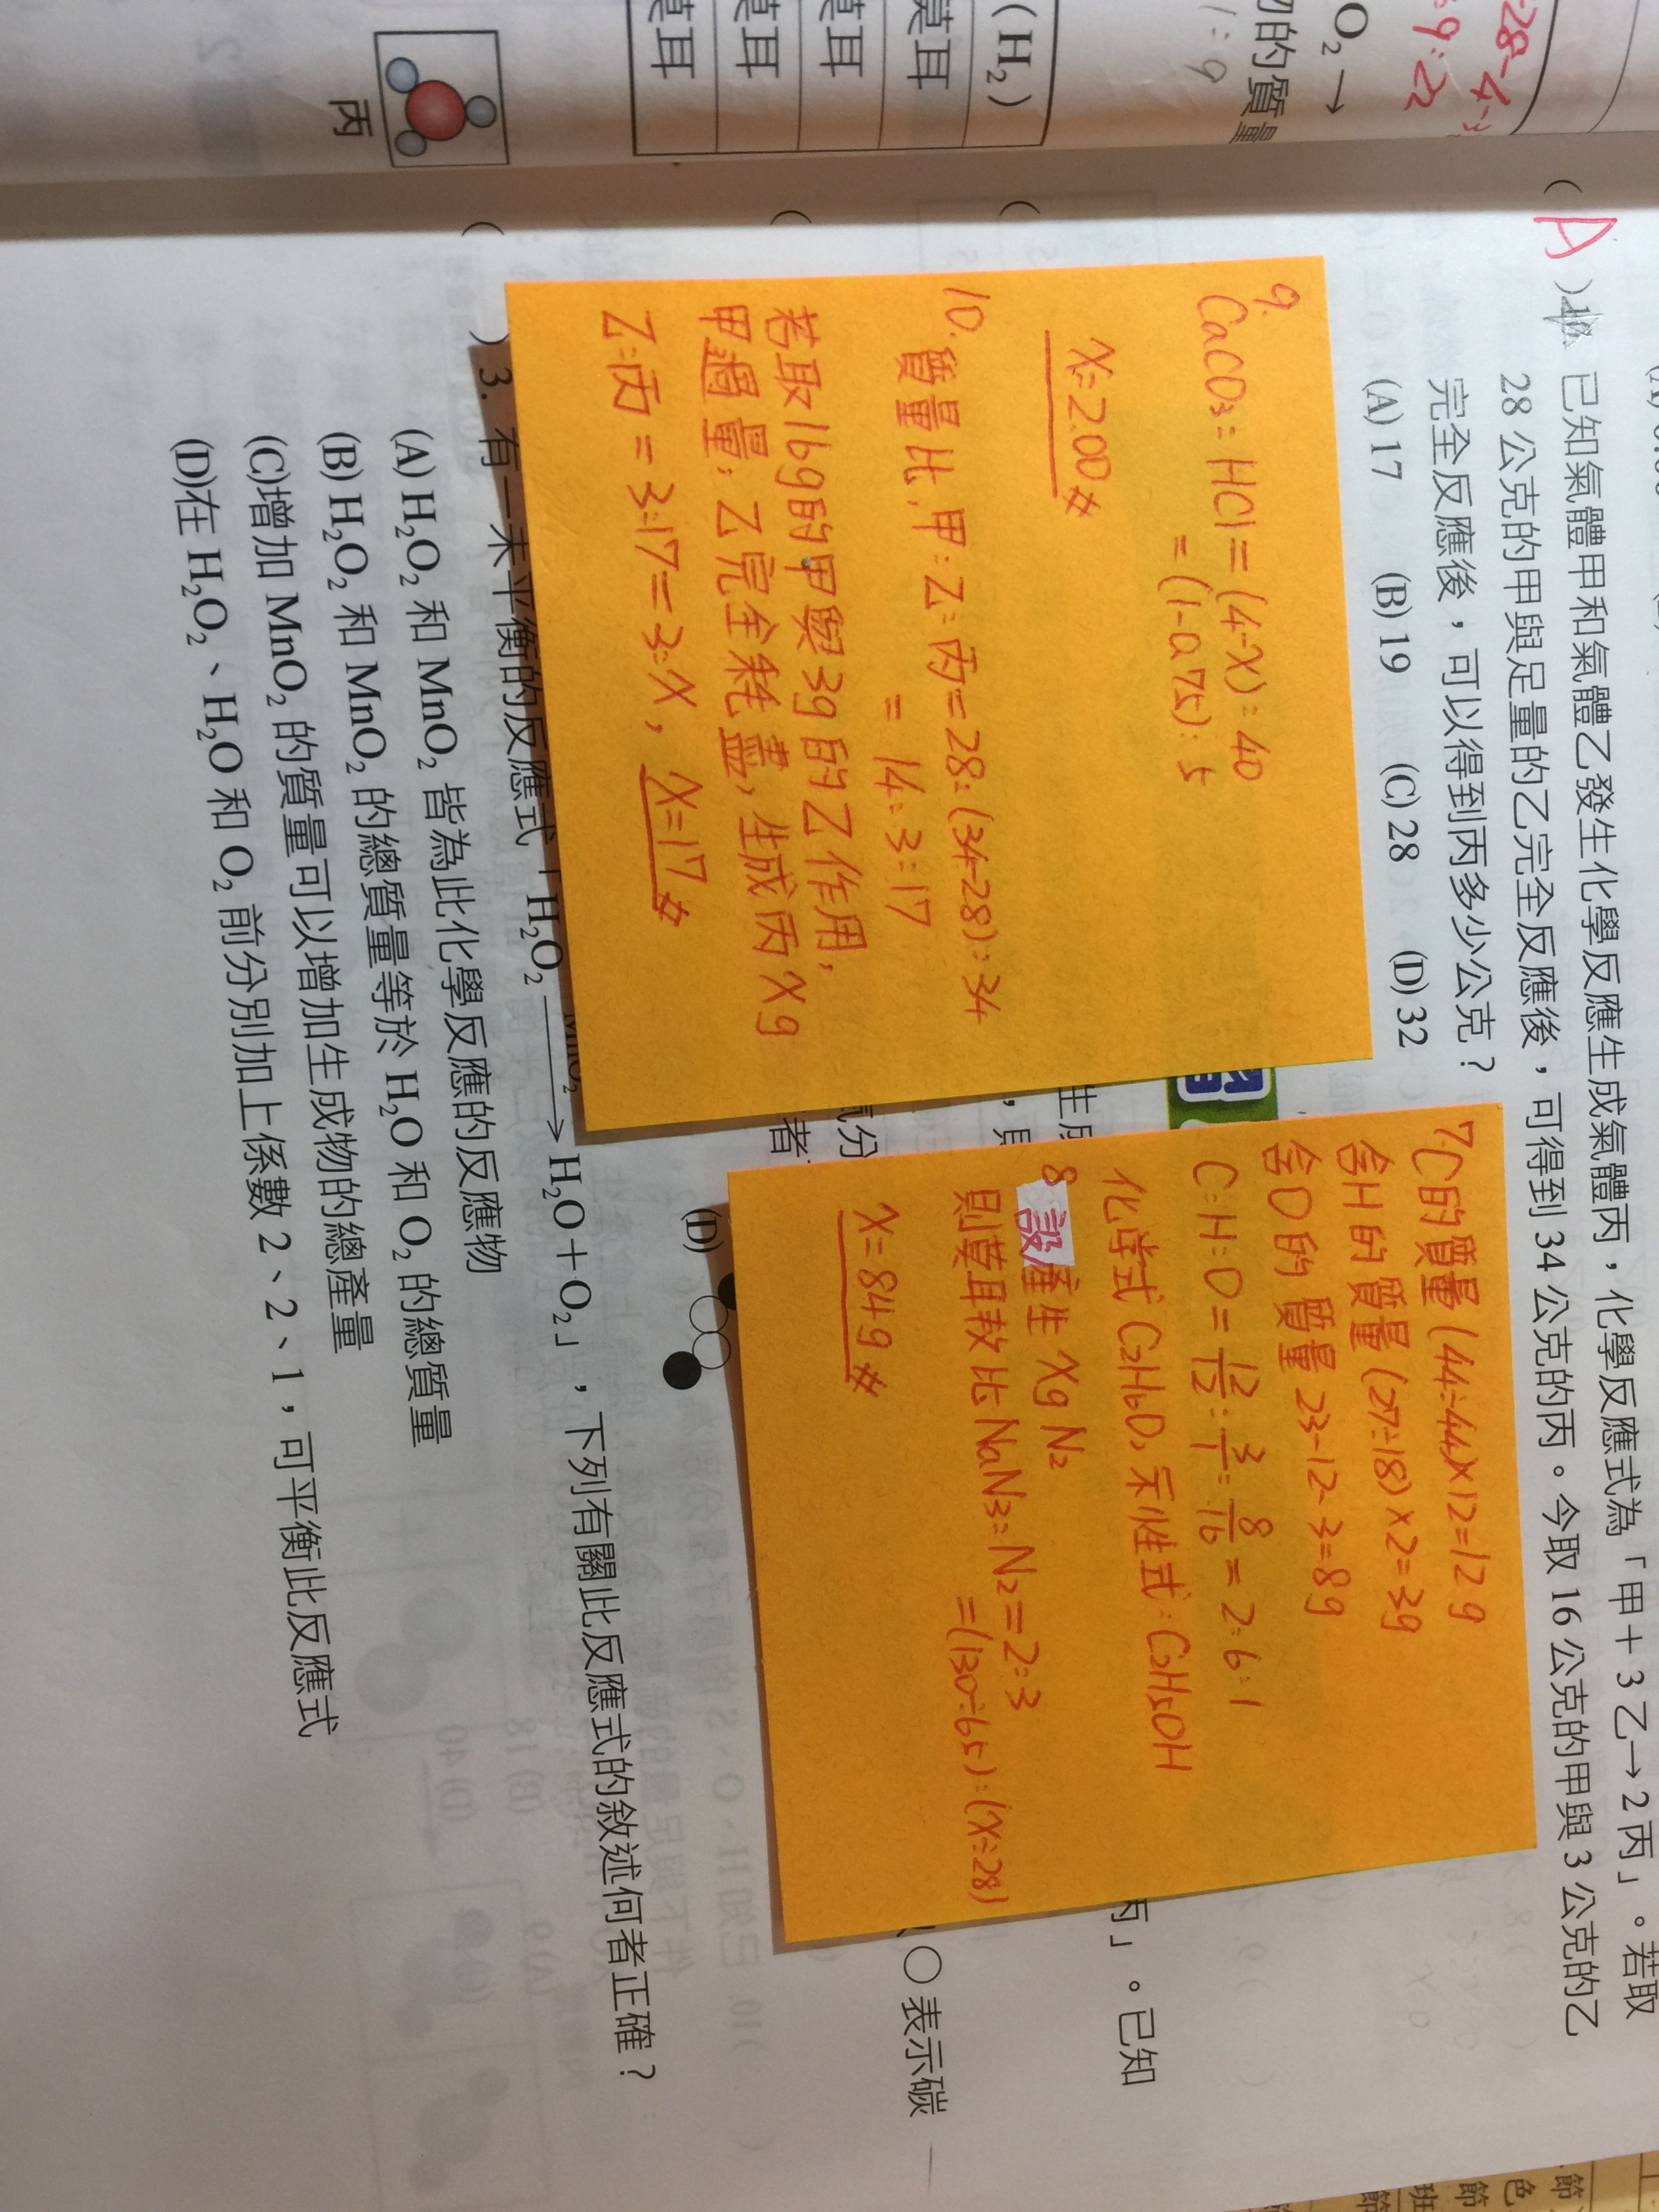 28-4-
=9:2
O₂→
的質量
1:9
(H₂)
莫耳
莫耳
莫耳
莫耳
丙
(A)10. 已知氣體甲和氣體乙發生化學反應生成氣體丙，化學反應式為「甲+3乙→2丙」。若取
28公克的甲與足量的乙完全反應後，可得到34公克的丙。今取16公克的甲與3公克的乙
完全反應後，可以得到丙多少公克？
(A)17 (B)19 (C)28 (D)32
9.
CaCO₃：HCl=(4÷X)：40
=(1-0.75)：5
X=200#
10.
質量比，甲：乙：丙=28：(34-28)：34
=14：3：17
若取16g的甲與3g的乙作用，
甲過量，乙完全耗盡，生成丙Xg
乙：丙=3：17=3：X，X=17#
7.C的質量(44÷44)×12=12g
含H的質量(27÷18)×2=3g
含O的質量23-12-3=8g
C：H：O=12/12：3/1：8/16=2：6：1
化學式C₂H₆O，示性式：C₂H₅OH
8.設產生XgN₂
則莫耳數比NaN₃：N₂=2：3
=(130÷65)：(X÷28)
X=84g#
丙」。已知
○表示碳
氣分
者
(D)
( )3. 有一未平衡的反應式「H₂O₂ MnO₂→ H₂O+O₂」，下列有關此反應式的敘述何者正確？
(A)H₂O₂和MnO₂皆為此化學反應的反應物
(B)H₂O₂和MnO₂的總質量等於H₂O和O₂的總質量
(C)增加MnO₂的質量可以增加生成物的總產量
(D)在H₂O₂、H₂O和O₂前分別加上係數2、2、1，可平衡此反應式